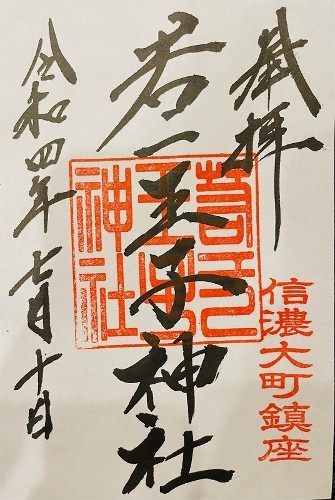 奉拝
信濃大町鎮座
若一王子神社
若一
王子
神社
令和四年七月十日